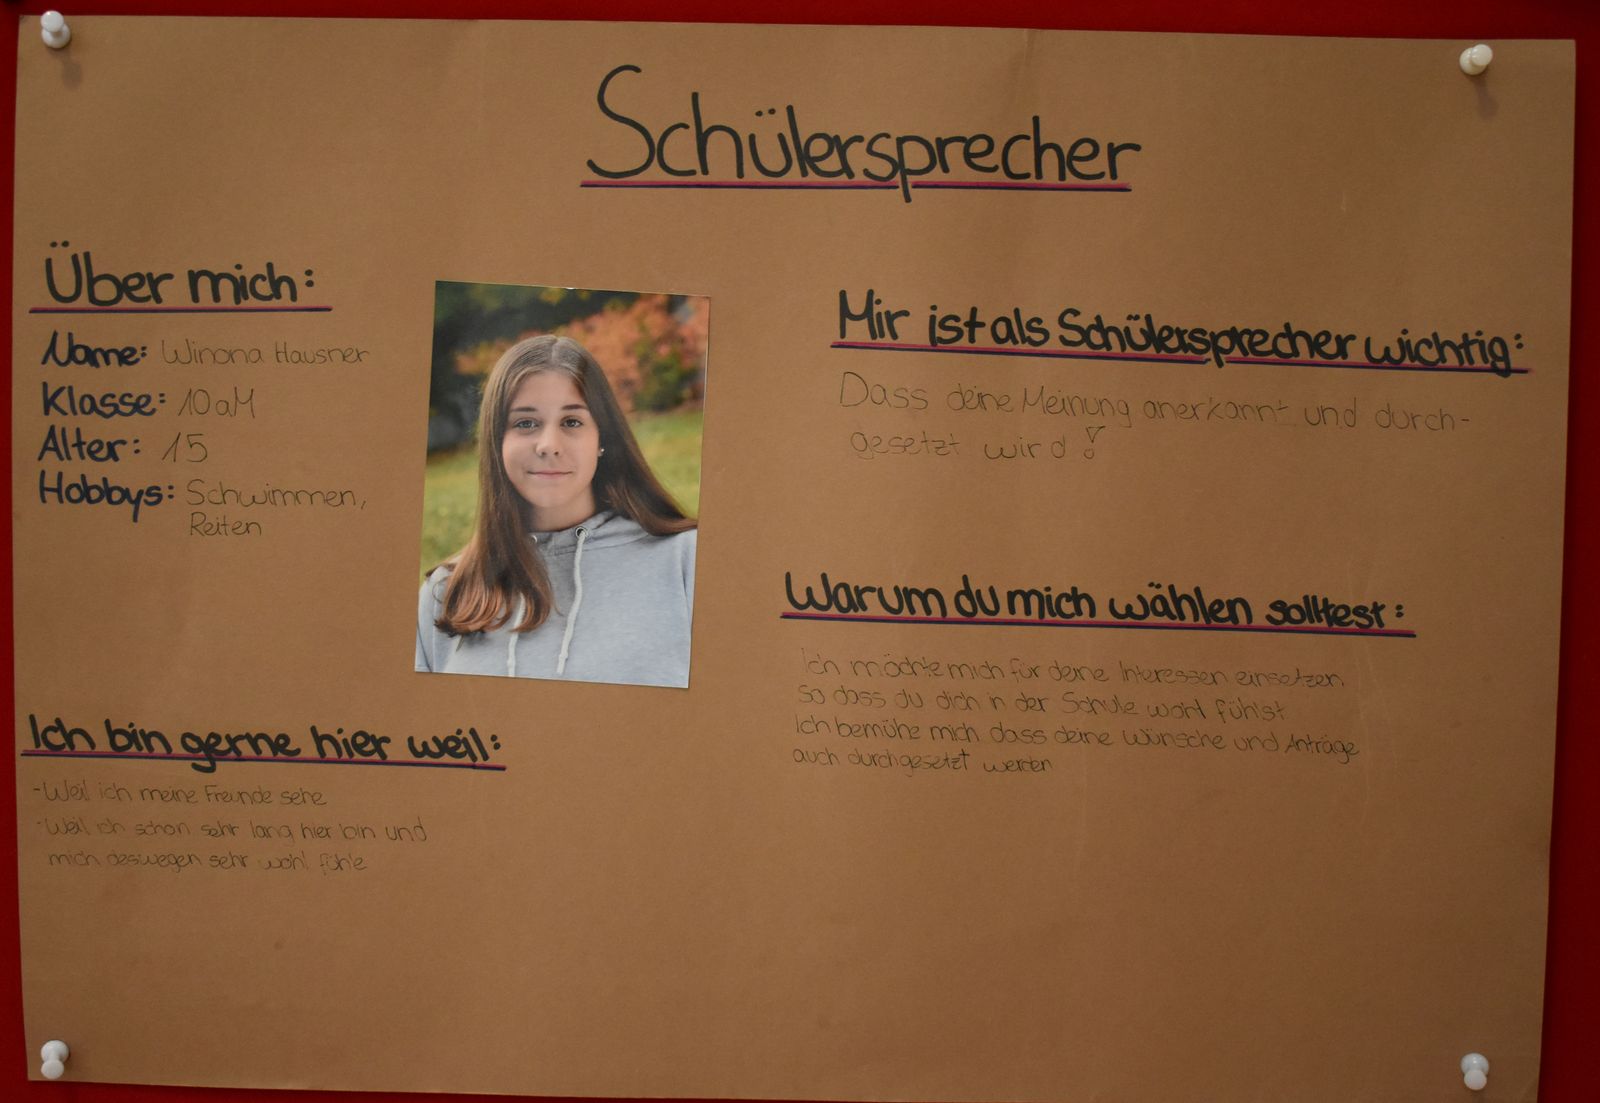 Schülersprecher
Über mich:
Name: Winona Hausner
Klasse: 10aM
Alter: 15
Hobbys: Schwimmen,
Reiten
Ich bin gerne hier weil:
-Weil ich meine Freunde sehe
-Weil ich schon sehr lang hier bin und
mich deswegen sehr wohl fühle
Mir ist als Schülersprecher wichtig:
Dass deine Meinung anerkannt und durch-
gesetzt wird!
Warum du mich wählen solltest:
Ich möchte mich für deine Interessen einsetzen
So dass du dich in der Schule wohl fühlst
Ich bemühe mich dass deine Wünsche und Anträge
auch durchgesetzt werden